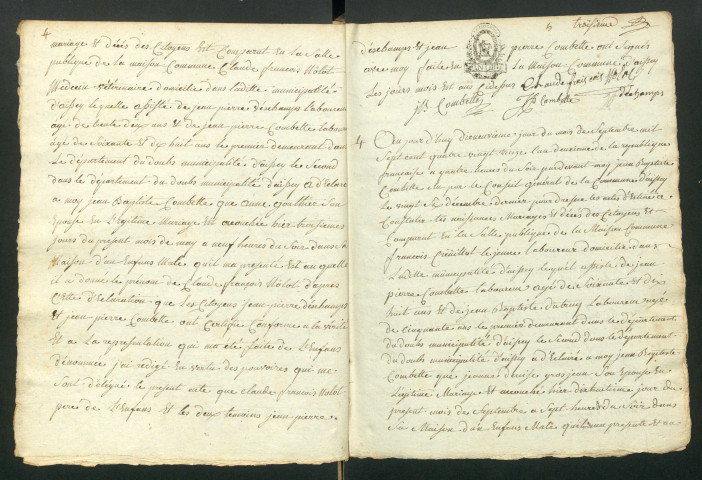 4
mariage et décès des Citoyens Est Comparut En La Salle
publique de la maison Commune Claude francois Molot
Medecin vétérinaire domicilié dans ladite municipalité
d'aissey lequelle assisté de jean pierre deschamps laboureur
agé de trente deux ans Et de jean pierre Combette labour
agé de Soixante Et Dix huit ans le premier demeurant dans
Le département du doubs municipalité d'aissey le Second
dans le département du doubs municipalité d'aissey a Déclaré
a moy jean Baptiste Combette que anne gauthier Son
Epouse En Légitime Mariage Est accouchée hier troisiemes
jours du présent mois de may a neuf heures du Soir dans Sa
Maison d'un Enfans Male quil ma presenté Et auquelle
il a donné le prénom de Claude françois Molot d'après
Cette Déclaration que les Citoyens jean pierre deschamps
Et jean pierre Combette ont Certifié Conforme a la vérité
Et a La représentation qui ma été faite de L'Enfans
dénommé j'ai rédigé En vertu des pouvoirs qui me
Sont délégué le présent acte que claude francois Molot
père de L'Enfans Et les deux temoins jean pierre
5 troisième
déschamps Et jean pierre Combette ont Signés
avec moy fait En La Maison Commune d'aissey
Les jours mois Est ans cidessus Claude françois Molot
JB. Combette JP Combette JP deschamps
4 Au jourd'huy dixneuvième jour du mois de Septembre mil
Sept cent quatre vingt treize lan deuxieme de la republique
francaise a quatre heures du Soir pardevant moy jean Baptiste
Combette élu par le Conseil général de la Commune d'aissey
le vingt Décembre dernier pour dresser les actes destinés a
Constater les naissances Mariages Et décès des Citoyens Est
Comparut En La Salle publique de la Maison Commune
francois le jeune laboureur domicilié dans
Ladite municipalité d'aissey lequel assisté de jean
pierre Combette laboureur agé de Soixante Et dix
huit ans Et de jean Baptiste laboureur agé
de Cinquante ans le premier demeurant dans le département
du doubs municipalité d'aissey le Second dans le département
du doubs municipalité d'aissey a Déclaré a moy jean Baptiste
Combette que jeanne denise grosjean Son Epouse En
Légitime Mariage Est accouchée hier dixhuitième jour du
present mois de Septembre a Sept heures du Soir dans
Sa Maison d'un Enfans Male quil ma presenté Et au